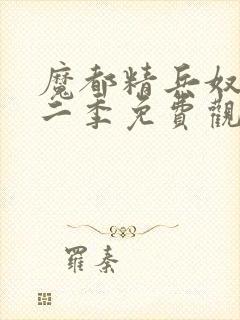 魔都精兵奴
二季免費觀
羅秦